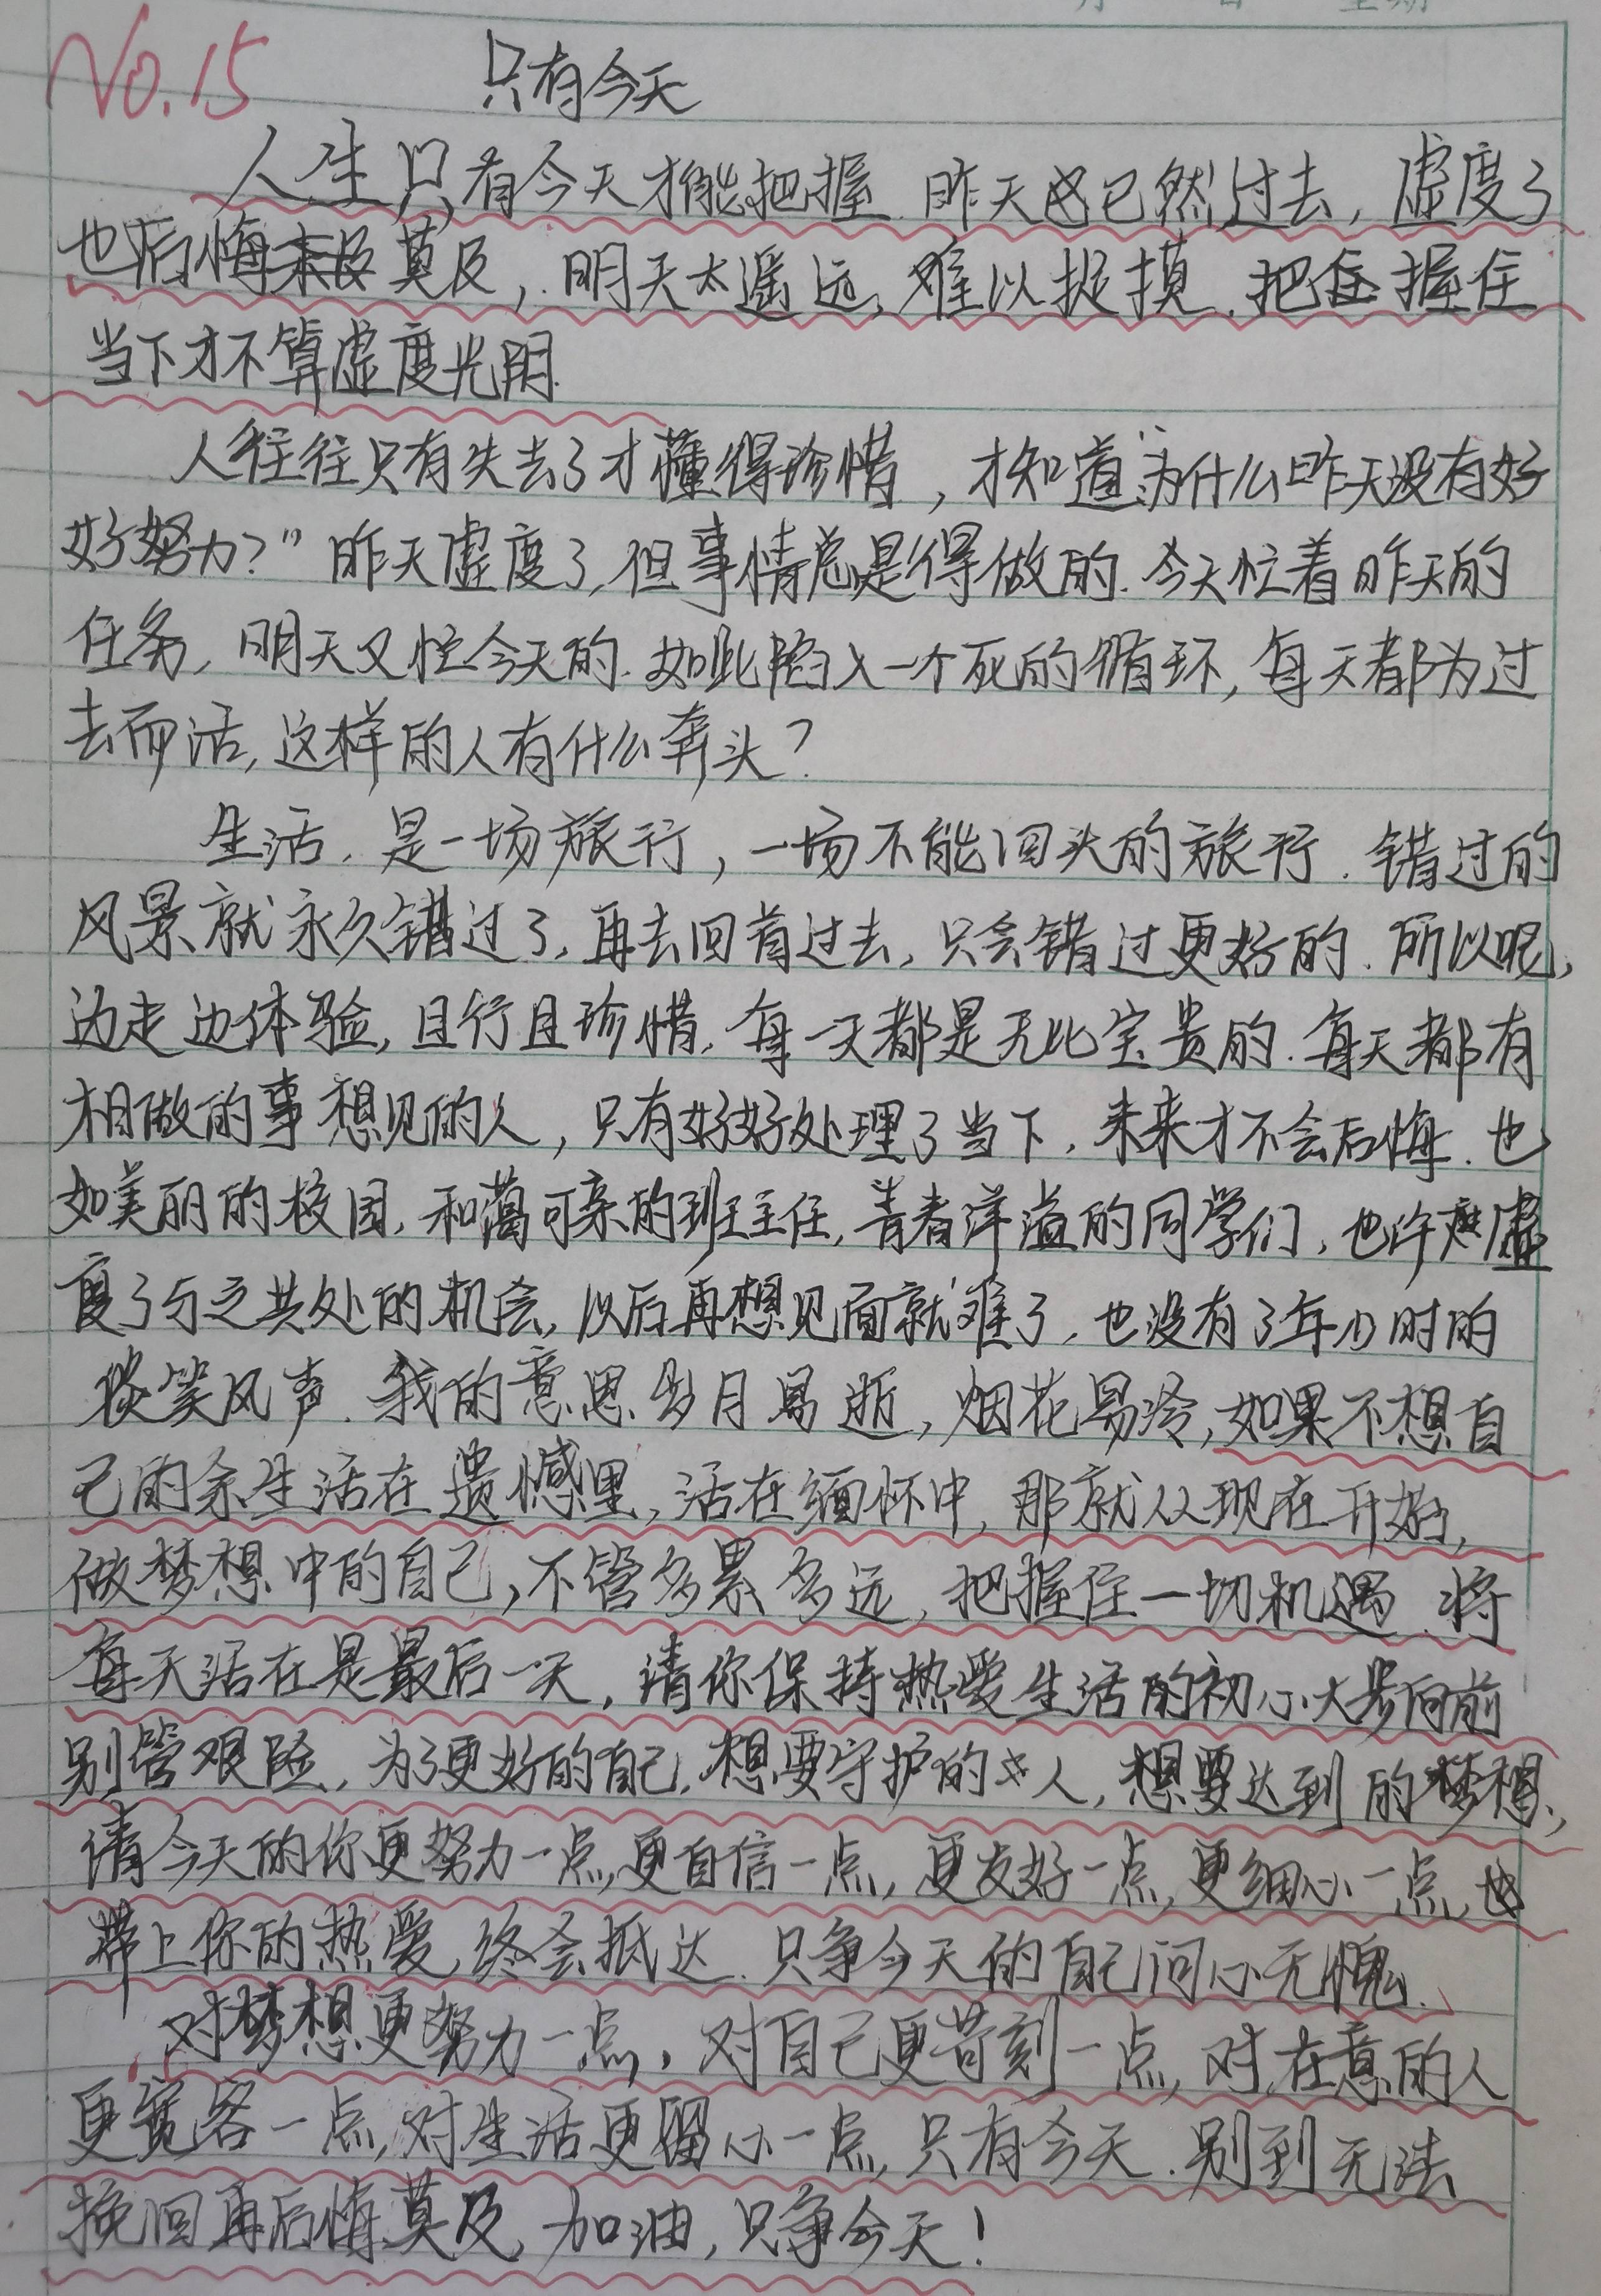 No.15
只有今天
人生只有今天才能把握.昨天已然过去,虚度了
也后悔莫及,明天太遥远,难以捉摸.把握住
当下才不算虚度光阴.
人往往只有失去了才懂得珍惜,才知道“为什么昨天没有好
好努力?”昨天虚度了,但事情总是得做的.今天忙着昨天的
任务,明天又忙今天的.如此陷入一个死的循环,每天都为过
去而活,这样的人有什么奔头?
生活,是一场旅行,一场不能回头的旅行.错过的
风景就永久错过了,再去回首过去,只会错过更好的.所以呢,
边走边体验,且行且珍惜,每一天都是无比宝贵的.每天都有
相做的事想见的人,只有好好处理了当下,未来才不会后悔.也
如美丽的校园,和蔼可亲的班主任,青春洋溢的同学们,也许虚
度了与之共处的机会,以后再想见面就难了,也没有了年少时的
谈笑风声.我的意思岁月易逝,烟花易冷,如果不想自
己的余生活在遗憾里,活在缅怀中,那就从现在开始,
做梦想中的自己,不管多累多远,把握住一切机遇.将
每天活在是最后一天,请你保持热爱生活的初心大步向前
别管艰险,为了更好的自己,想要守护的人,想要达到的梦想,
请今天的你更努力一点,更自信一点,更友好一点,更细心一点,
带上你的热爱,终会抵达.只争今天的自己问心无愧.
对梦想更努力一点,对自己更苛刻一点,对在意的人
更宽容一点,对生活更留心一点,只有今天.别到无法
挽回再后悔莫及,加油,只争今天!